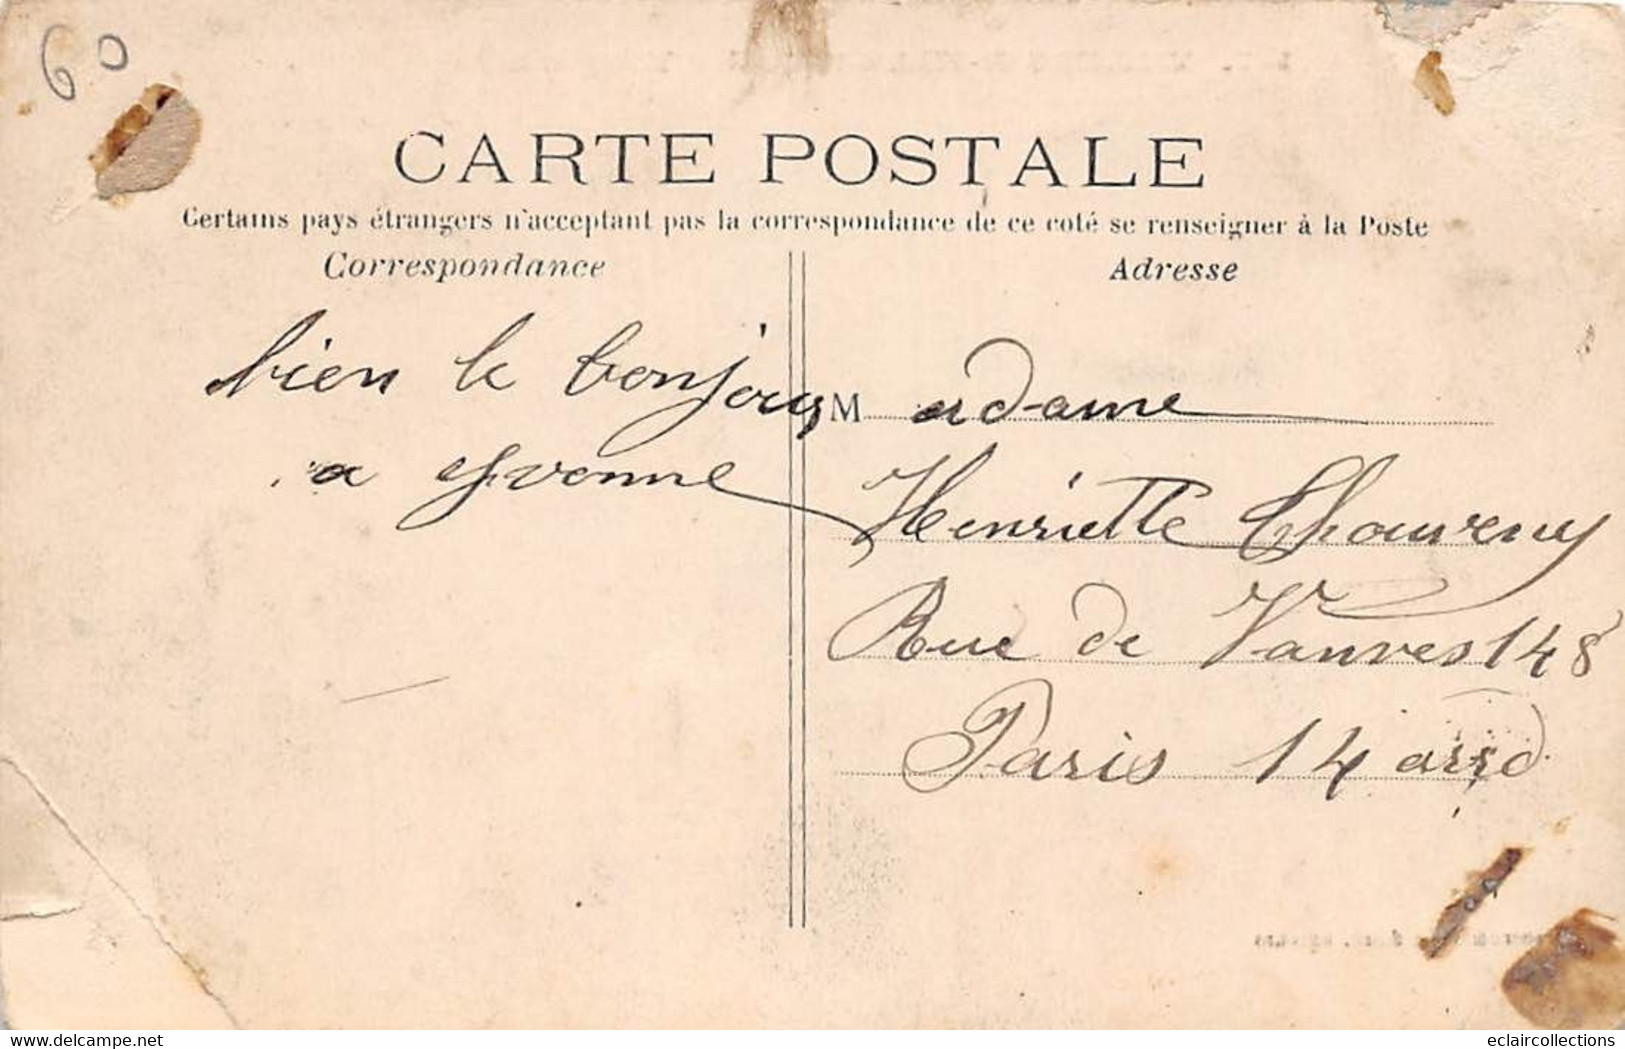 60
CARTE POSTALE
Certains pays étrangers n'acceptant pas la correspondance de ce coté se renseigner à la Poste
Correspondance
Adresse
bien le bonjour
a Yvonne
Madame
Henriette Chouveny
Rue de Vanves 148
Paris 14 arrd
delcampe.net
eclaircollections